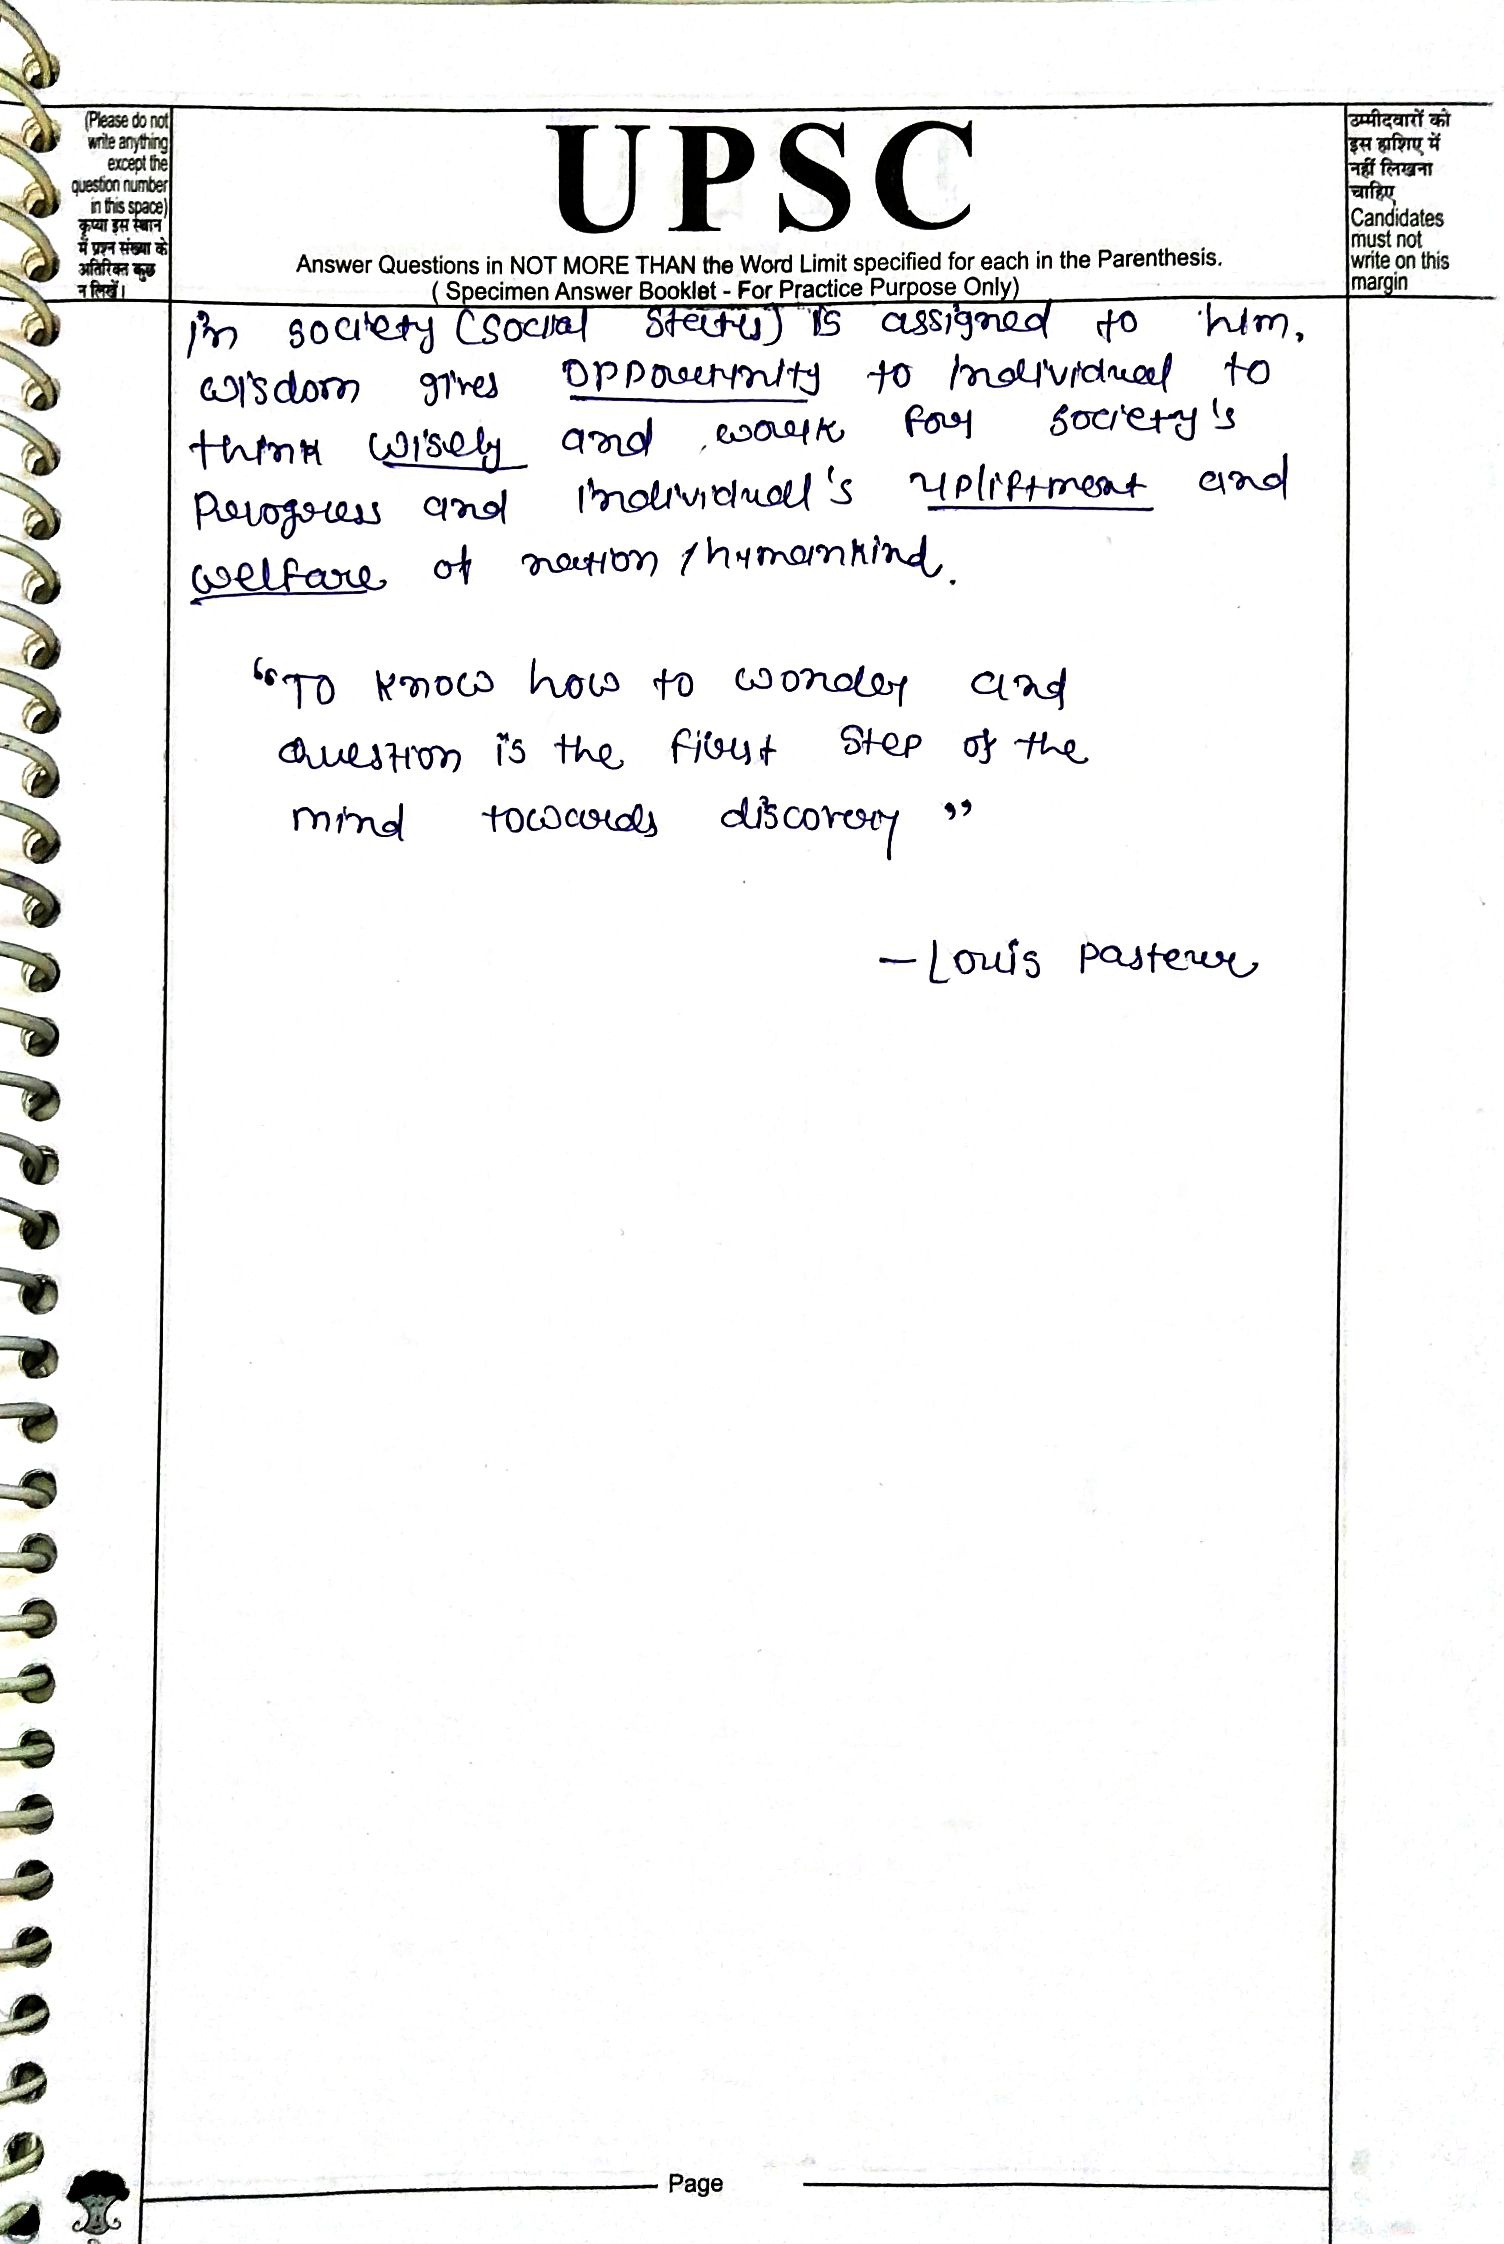 (Please do not
write anything
except the
question number
in this space)
कृप्या इस स्थान
में प्रश्न संख्या के
अतिरिक्त कुछ
न लिखें।
UPSC
Answer Questions in NOT MORE THAN the Word Limit specified for each in the Parenthesis.
( Specimen Answer Booklet - For Practice Purpose Only)
उम्मीदवारों को
इस हाशिए में
नहीं लिखना
चाहिए
Candidates
must not
write on this
margin
in society (social status) is assigned to him,
wisdom gives opportunity to individual to
think wisely and work for society's
Progress and individual's upliftment and
welfare of nation / humankind.
"To know how to wonder and
question is the first step of the
mind towards discovery"
- Louis Pasteur
Page